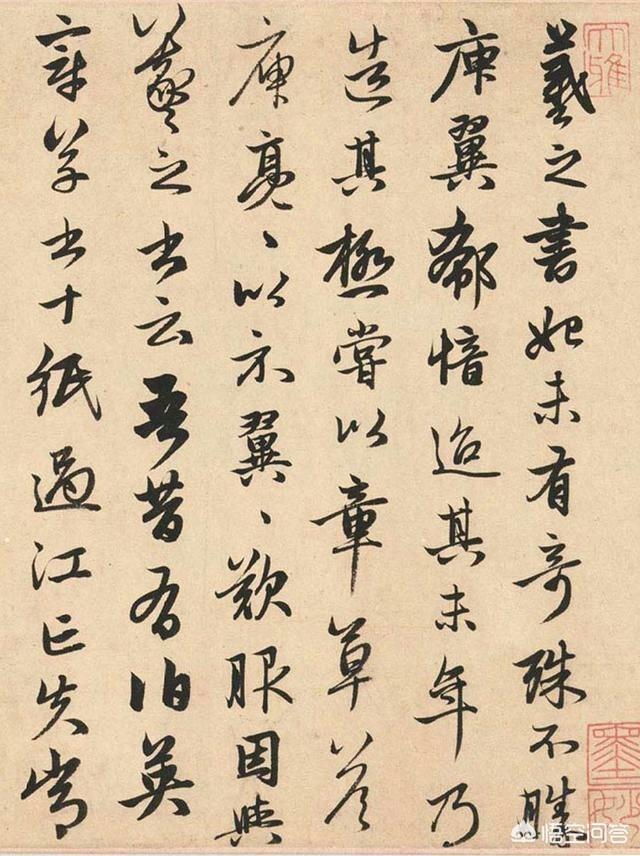 羲之書始未有奇殊不勝
庾翼郗愔迨其末年乃
造其極嘗以章草答
庾亮、以示翼、歎服因與
羲之書云吾昔有伯英
章草書十紙過江亡失常
大雅
悟空问答